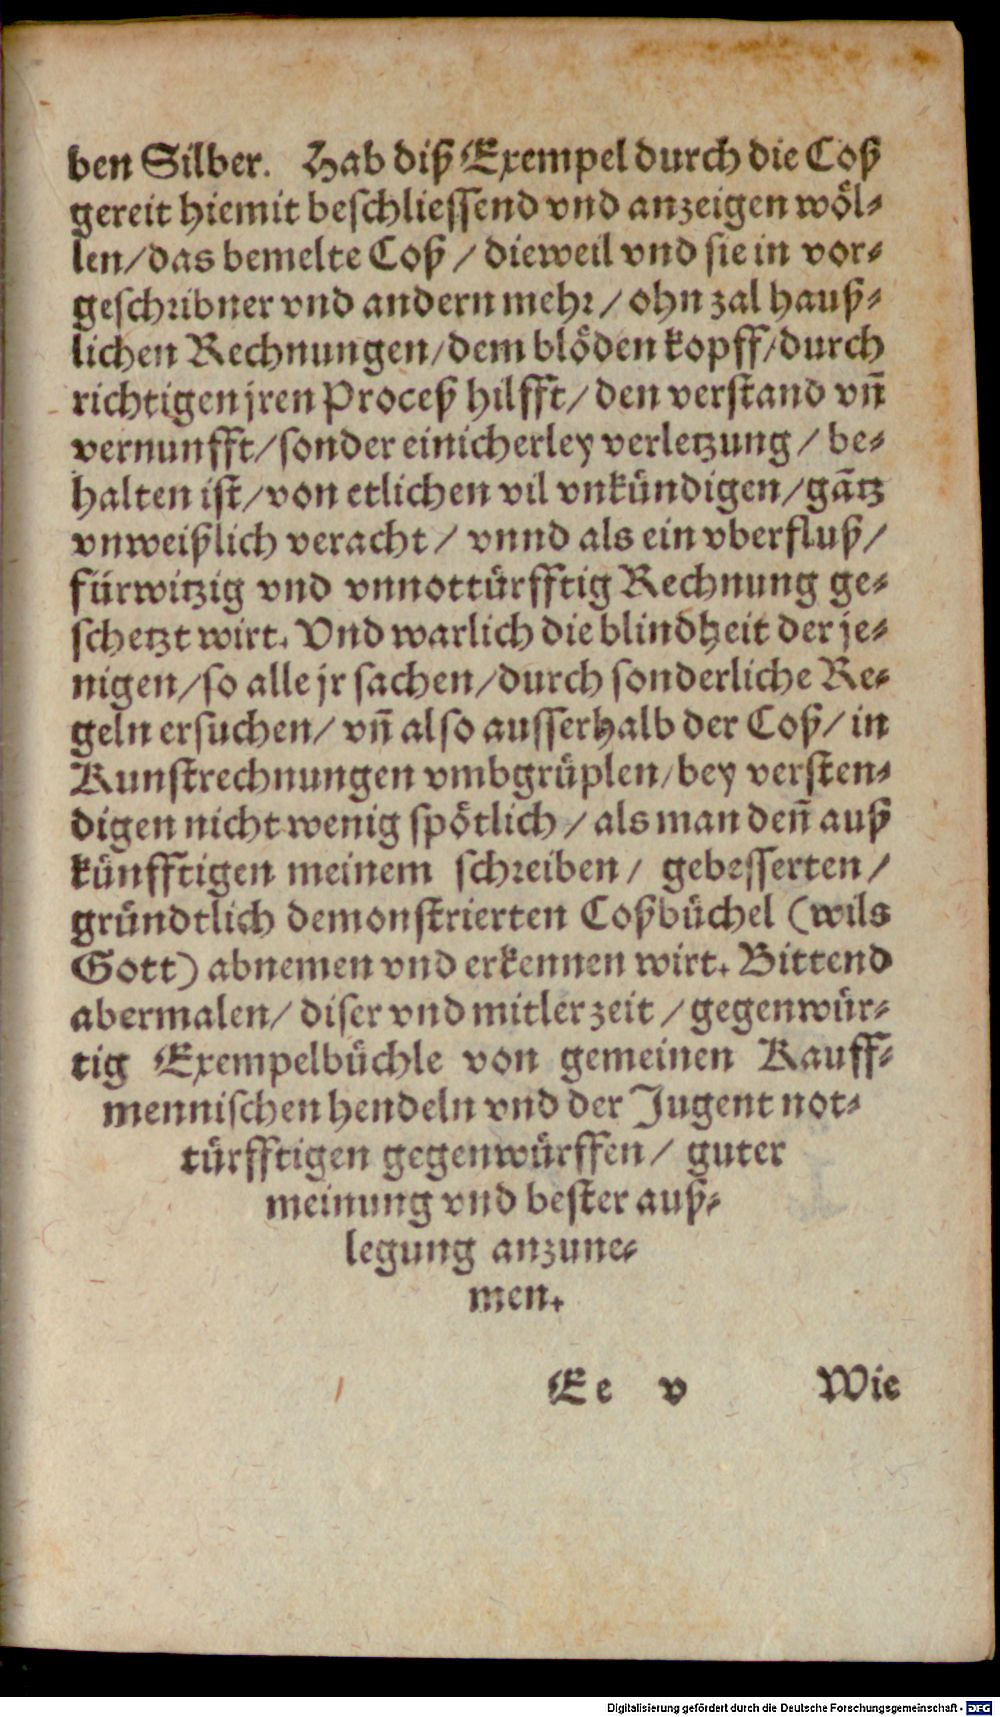 ben Silber. Hab diß Exempel durch die Coß
gereit hiemit beschliessend vnd anzeigen wöl⸗
len/das bemelte Coß / dieweil vnd sie in vor⸗
geschribner vnd andern mehr / ohn zal hauß⸗
lichen Rechnungen/dem blöden kopff/durch
richtigen jren Proceß hilfft/ den verstand vñ
vernunfft/sonder einicherley verletzung / be⸗
halten ist/von etlichen vil vnkündigen/gãtz
vnweißlich veracht / vnnd als ein vberfluß/
fürwitzig vnd vnnottürfftig Rechnung ge⸗
schetzt wirt. Vnd warlich die blindheit der je⸗
nigen/so alle jr sachen/durch sonderliche Re⸗
geln ersuchen/ vñ also ausserhalb der Coß/ in
Kunstrechnungen vmbgrüplen/bey versten⸗
digen nicht wenig spötlich / als man deñ auß
künfftigen meinem schreiben/ gebesserten/
gründtlich demonstrierten Coßbüchel (wils
Gott) abnemen vnd erkennen wirt. Bittend
abermalen/ diser vnd mitler zeit / gegenwür⸗
tig Exempelbüchle von gemeinen Kauff⸗
mennischen hendeln vnd der Jugent not⸗
türfftigen gegenwürffen/ guter
meinung vnd bester auß⸗
legung anzune⸗
men.
Ee v Wie
Digitalisierung gefördert durch die Deutsche Forschungsgemeinschaft - DFG